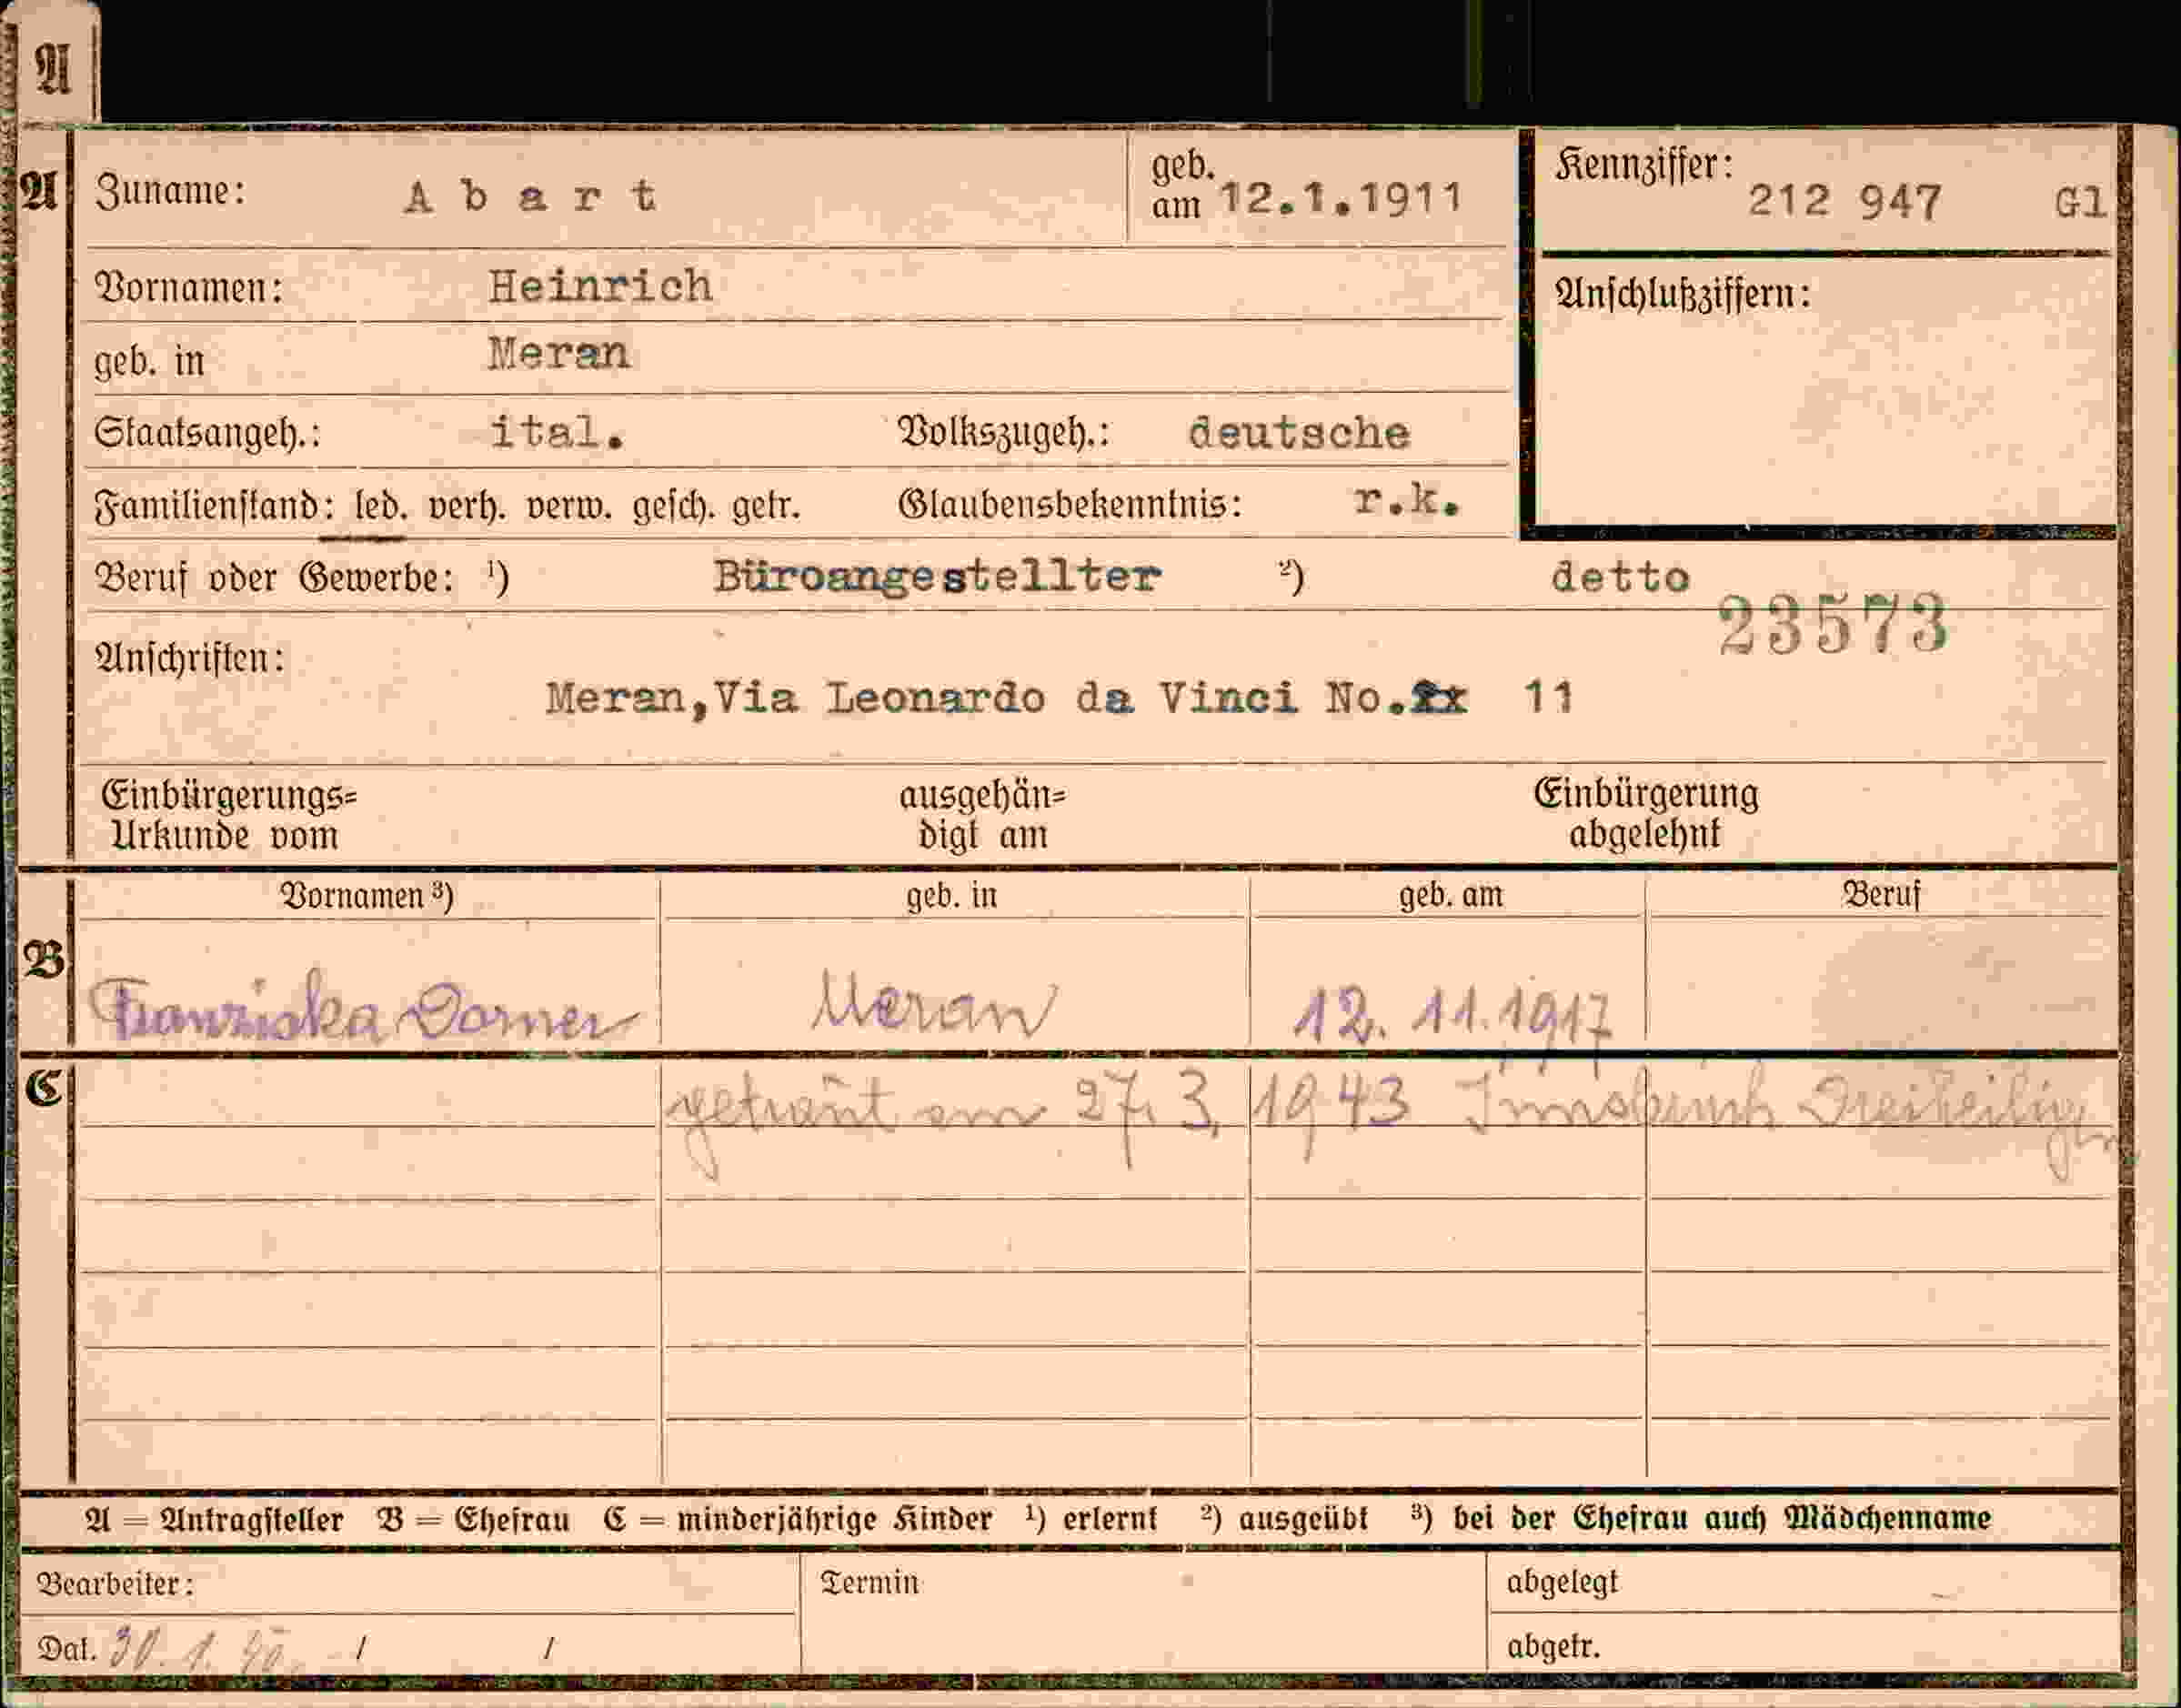 A
A Zuname: Abart geb. am 12.1.1911 Kennziffer: 212 947 Gl
Vornamen: Heinrich Anschlußziffern:
geb. in Meran
Staatsangeh.: ital. Volkszugeh.: deutsche
Familienstand: led. verh. verw. gesch. getr. Glaubensbekenntnis: r.k.
Beruf oder Gewerbe: ¹) Büroangestellter ²) detto
23573
Anschriften:
Meran,Via Leonardo da Vinci No. 11
Einbürgerungs= ausgehän= Einbürgerung
Urkunde vom digt am abgelehnt
Vornamen ³) geb. in geb. am Beruf
B Franziska Dorner Meran 12. 11. 1917
C getraut am 27. 3. 1943 Innsbruck Dreiheiligen
A = Antragsteller B = Ehefrau C = minderjährige Kinder ¹) erlernt ²) ausgeübt ³) bei der Ehefrau auch Mädchenname
Bearbeiter: Termin abgelegt
Dat. 30. 1. 40. / / abgetr.